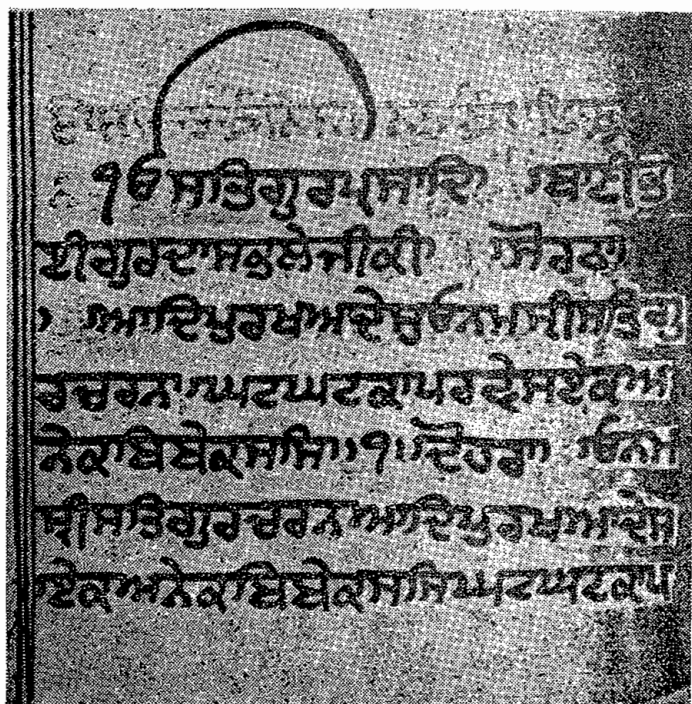 ੴ ਸਤਿਗੁਰਪ੍ਰਸਾਦਿ ॥ਬਾਣੀਭਾ
ਈਗੁਰਦਾਸਭਲੇਜੀਕੀ ॥ਸੋਰਠਾ
॥ਆਦਿਪੁਰਖਆਦੇਸੁਓਨਮਸ੍ਰੀਸਤਿਗੁ
ਰਚਰਨ॥ਘਟਘਟਕਾਪਰਵੇਸਏਕਅ
ਨੇਕਬਿਬੇਕਸਸਿ॥੧॥ਦੋਹਰਾ ॥ਓਨਮ
ਸ੍ਰੀਸਤਿਗੁਰਚਰਨਆਦਿਪੁਰਖਆਦੇਸ
ਏਕਅਨੇਕਬਿਬੇਕਸਸਿਘਟਘਟਕਾਪ